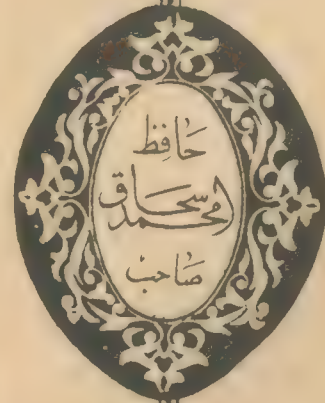 حَافِظ
محمد اسحاق
صَاحب